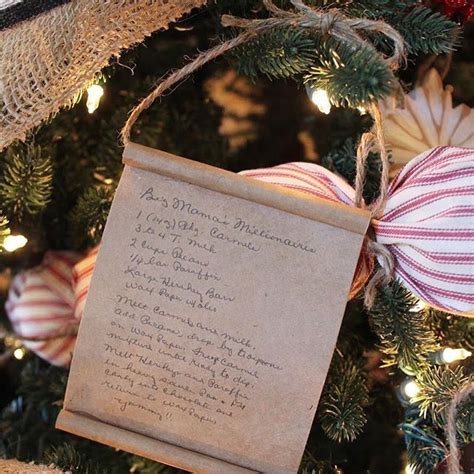 Big Mama's Millionaires
1 (14oz) Pkg. Carmels
3 to 4 T. Milk
2 Cups Pecans
1/4 bar Paraffin
Large Hershey Bar
Wax Paper
Melt Carmels and milk,
add Pecans, drop by teaspoons
on wax Paper. Freeze Carmel
mixture until ready to dip.
Melt Hershey and Paraffin
in heavy sauce Pan. Dip
candy into chocolate and
return to wax Paper
yummy!!